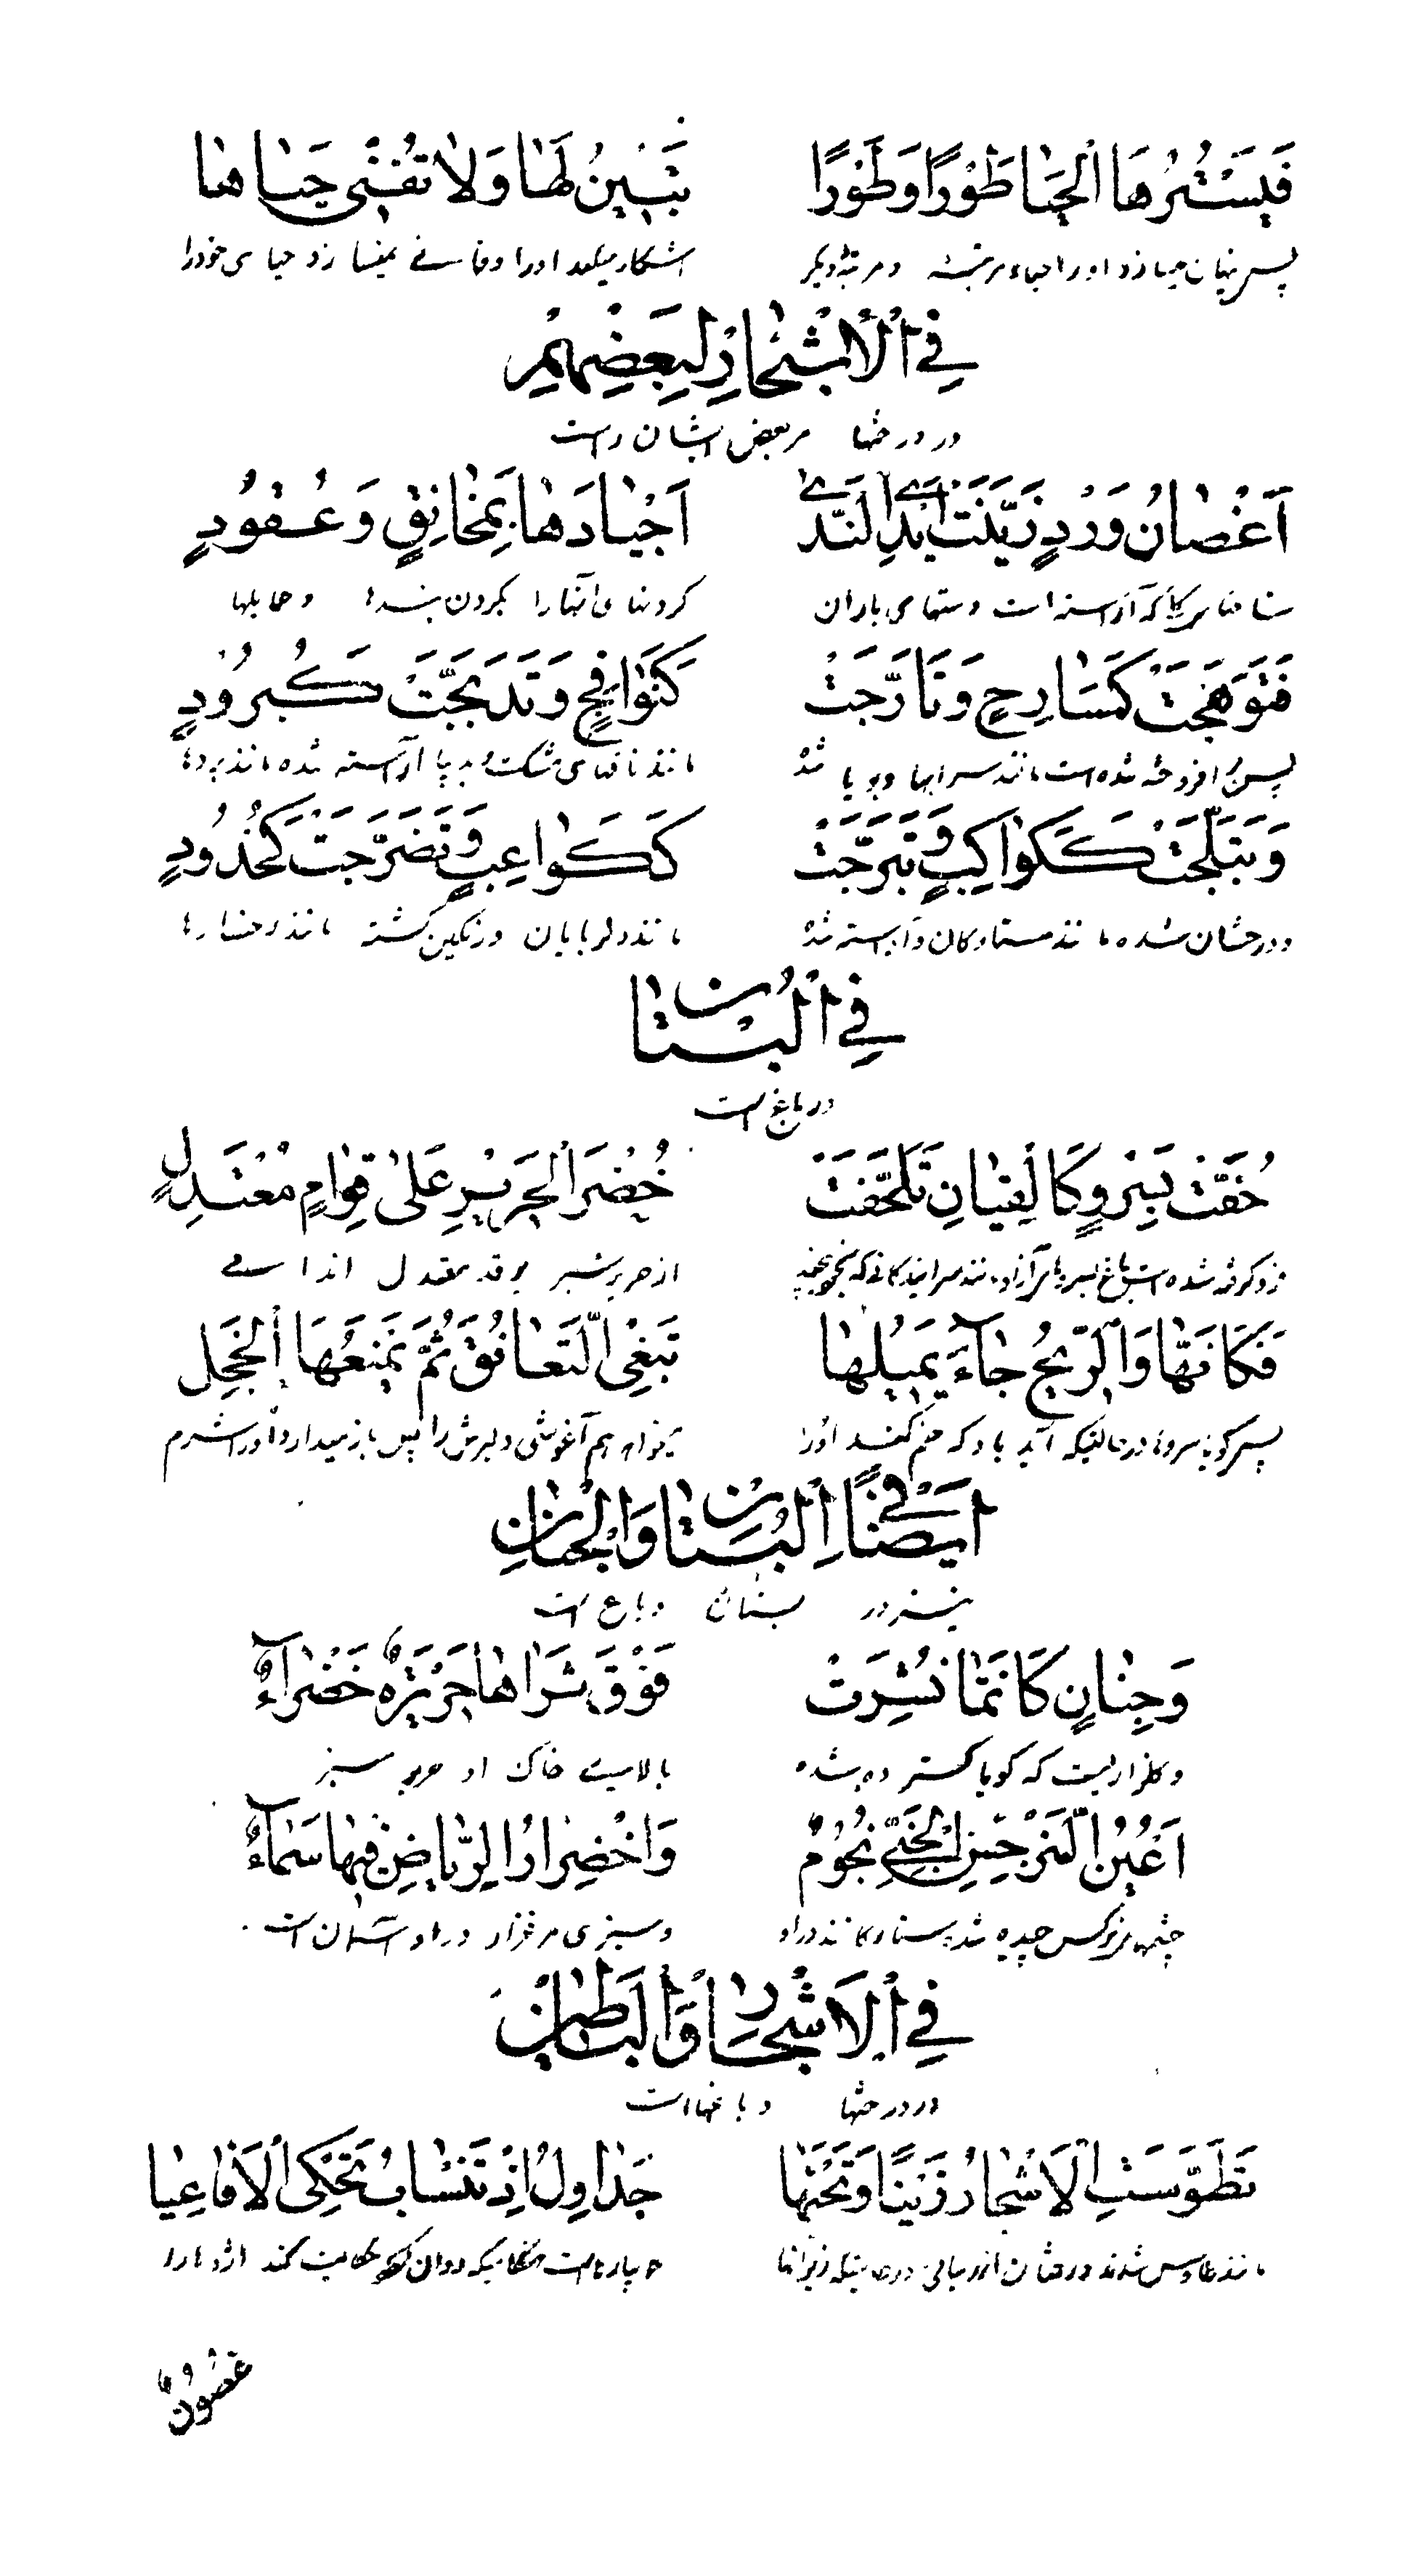 فَيَسْتُرُهَا الْحَيَا طَوْرًا وَطَوْرًا تَبْيِنُ لَهَا وَلَا تُفْنِي حَيَاهَا
پس پنهان میسازد اورا حیاء مرتبه و مرتبهٔ دیگر اشکار میکند اورا و فانے نمیسازد حیا ی خودرا
فِي الْأَشْجَارِ لِبَعْضِهِمْ
در درختها مر بعض ایشان راست
اَغْصَانُ وَرْدٍ زَيَّنَتْ اَيْدِي النَّدَى اَجْيَادَهَا بِمَخَانِقٍ وَعُقُودٍ
شاخهای گل که آراسته است دستهای باران گردنهای آنهارا بگردن بندها و حمایلها
فَتَوَهَّجَتْ كَمَسَارِجٍ وَتَأَرَّجَتْ كَنَوَافِجٍ وَتَدَبَّجَتْ كَبُرُودٍ
پس افروخته شده است مانند سراجها و بویا شد مانند نافهای مشک و دیبا آراسته شده مانند بردها
وَتَبَلَّجَتْ كَكَوَاكِبٍ وَتَبَرَّجَتْ كَكَوَاعِبٍ وَتَضَرَّجَتْ كَخُدُودٍ
و درخشان شده مانند ستارکان و آراسته شد مانند دلربایان و رنگین گشته مانند رخسارها
فِي الْبُسْتَانِ
در باغ است
حُفَّتْ بِسَرْوٍ كَالْقِيَانِ تَلَحَّفَتْ خُضْرَ الْحَرِيْرِ عَلَى قِوَامٍ مُعْتَدِلٍ
از حریر سبز بر قد معتدل
فَكَأَنَّهَا وَالرِّيحُ جَاءَ يُمِيلُهَا تَبْغِي التَّعَانُقَ ثُمَّ يَمْنَعُهَا الْخَجَلُ
پس گویا سروها در حالتیکه آید باد که خم کند اورا میخواهد هم آغوشی دلبرش را پس باز میدارد اورا شرم
اَيْضًا فِي الْبُسْتَانِ وَالْجِنَانِ
نیز در بستان و باغ است
وَجِنَانٍ كَأَنَّمَا نُشِرَتْ فَوْقَ ثَرَاهَا حَرِيْرَةٌ خَضْرَاءُ
و گلزاریست که گویا گسترده شده بالای خاک او حریر سبز
اَعْيُنُ النَّرْجِسِ الْجَنِيِّ نُجُومٌ وَاخْضِرَارُ الرِّيَاضِ فِيهَا سَمَاءٌ
چشمهای نرگس چیده شده ستارگانند در او و سبزی مرغزار در او آسمان است
فِي الْأَشْجَارِ وَالْبَسَاطِيْنِ
در درختها و باغها است
تَطَوَّسَتِ الْأَشْجَارُ زَيْنًا وَتَحْتَهَا جَدَاوِلُ اِذْ تَنْسَابُ تَحْكِي الْأَفَاعِيَا
مانند طاوس شدند درختان از زیبائی در حالتیکه زیر آنها جویبارهاست هنگامیکه روان شود حکایت کند اژدهارا
غُصُونٌ